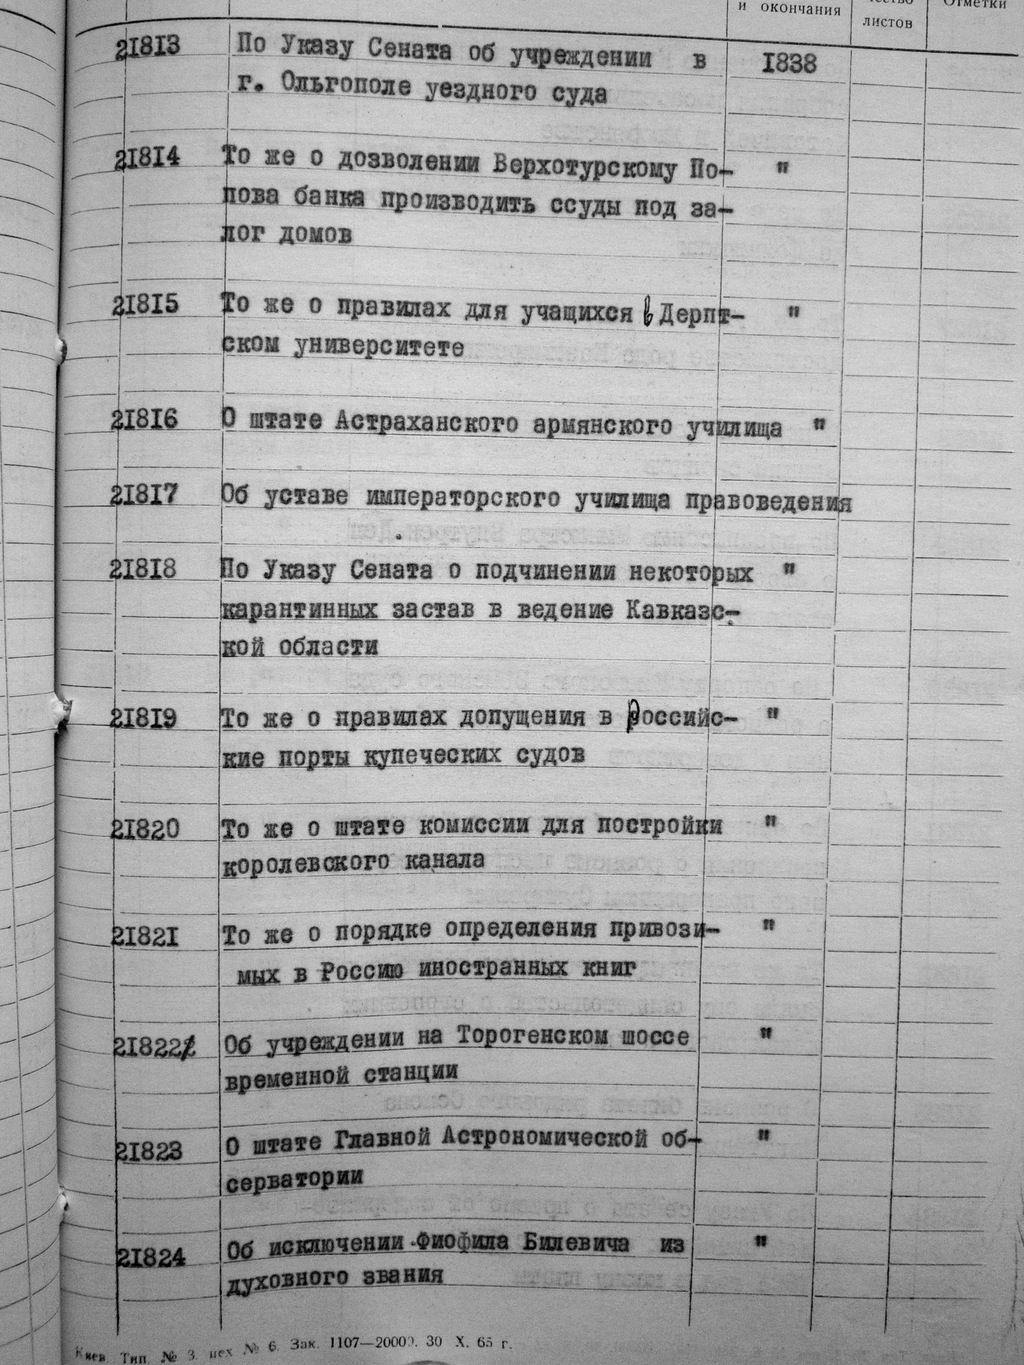 и окончания
листов
Отметки
21813 По Указу Сената об учреждении в 1838
г. Ольгополе уездного суда
21814 То же о дозволении Верхотурскому По- "
пова банка производить ссуды под за-
лог домов
21815 То же о правилах для учащихся в Дерпт- "
ском университете
21816 О штате Астраханского армянского училища "
21817 Об уставе императорского училища правоведения
21818 По Указу Сената о подчинении некоторых "
карантинных застав в ведение Кавказс-
кой области
21819 То же о правилах допущения в Российс- "
кие порты купеческих судов
21820 То же о штате комиссии для постройки "
королевского канала
21821 То же о порядке определения привози- "
мых в Россию иностранных книг
21822 Об учреждении на Торогенском шоссе "
временной станции
21823 О штате Главной Астрономической об- "
серватории
21824 Об исключении Фиофила Билевича из "
духовного звания
Киев. Тип. № 3. цех № 6. Зак. 1107—20000. 30 X. 65 г.